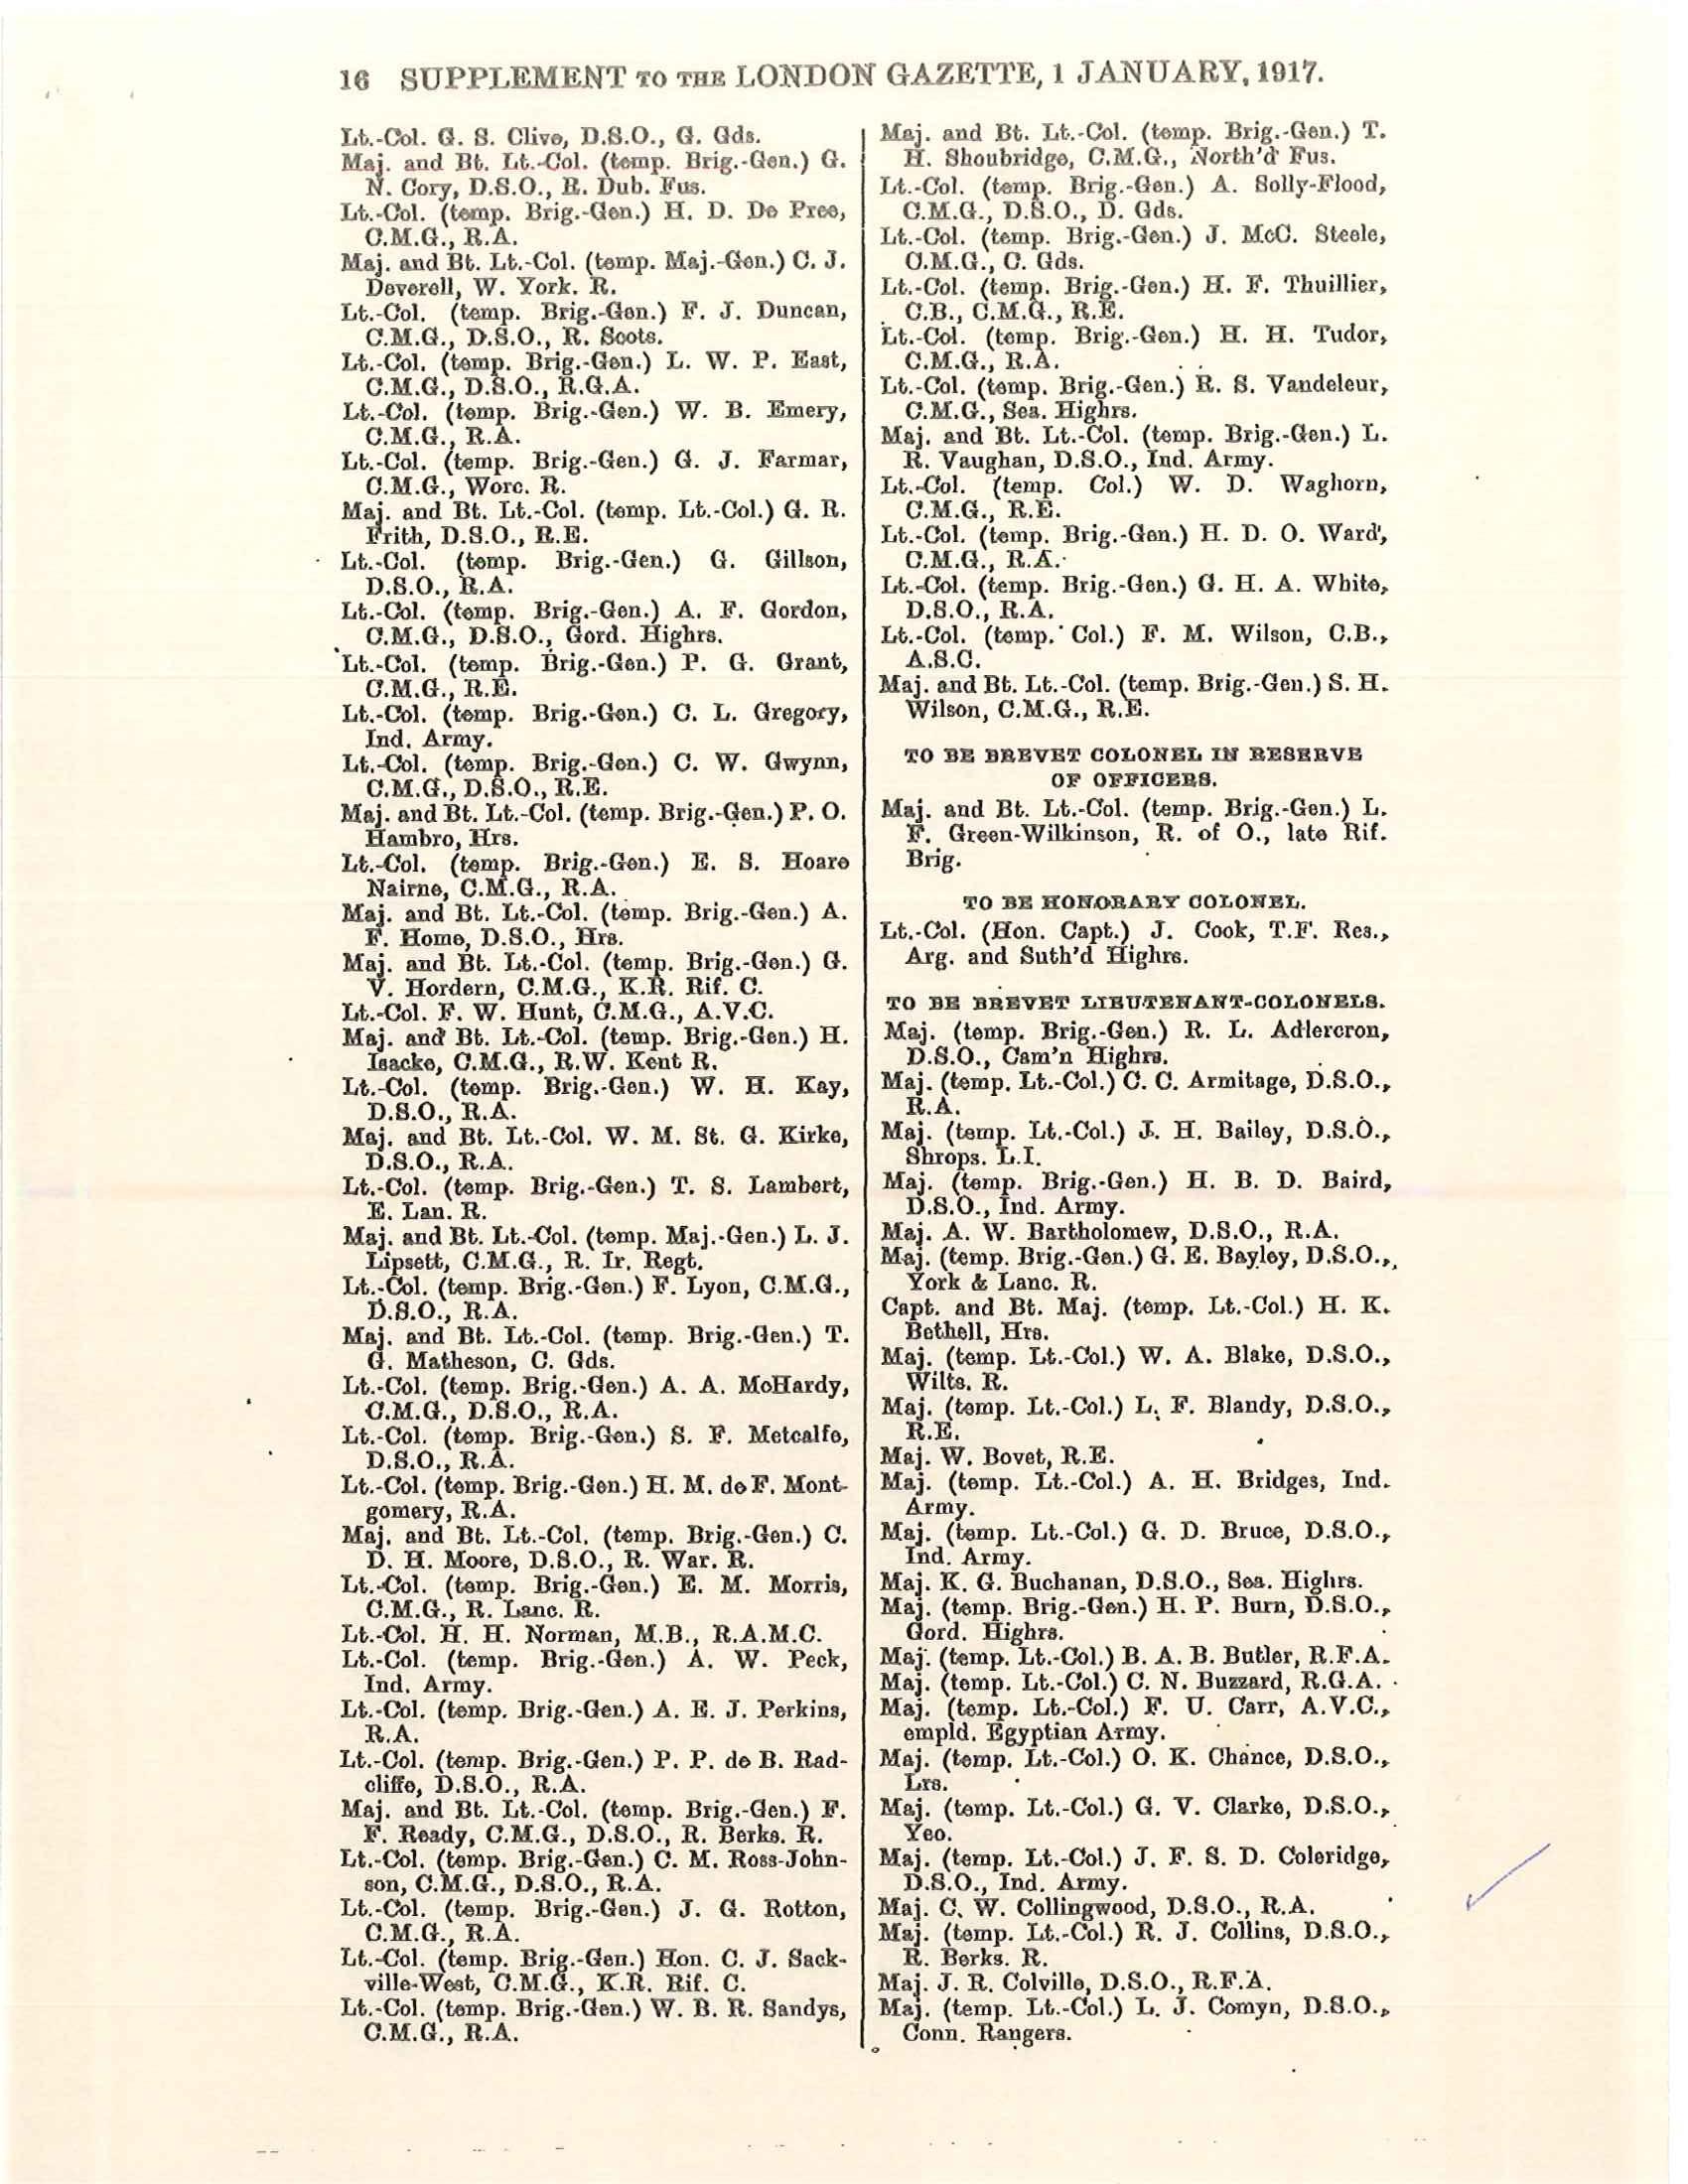 16 SUPPLEMENT TO THE LONDON GAZETTE, 1 JANUARY, 1917.
Lt.-Col. G. S. Clive, D.S.O., G. Gds.
Maj. and Bt. Lt.-Col. (temp. Brig.-Gen.) G.
N. Cory, D.S.O., R. Dub. Fus.
Lt.-Col. (temp. Brig.-Gen.) H. D. De Pree,
C.M.G., R.A.
Maj. and Bt. Lt.-Col. (temp. Maj.-Gen.) C. J.
Deverell, W. York. R.
Lt.-Col. (temp. Brig.-Gen.) F. J. Duncan,
C.M.G., D.S.O., R. Scots.
Lt.-Col. (temp. Brig.-Gen.) L. W. P. East,
C.M.G., D.S.O., R.G.A.
Lt.-Col. (temp. Brig.-Gen.) W. B. Emery,
C.M.G., R.A.
Lt.-Col. (temp. Brig.-Gen.) G. J. Farmar,
C.M.G., Worc. R.
Maj. and Bt. Lt.-Col. (temp. Lt.-Col.) G. R.
Frith, D.S.O., R.E.
Lt.-Col. (temp. Brig.-Gen.) G. Gillson,
D.S.O., R.A.
Lt.-Col. (temp. Brig.-Gen.) A. F. Gordon,
C.M.G., D.S.O., Gord. Highrs.
Lt.-Col. (temp. Brig.-Gen.) P. G. Grant,
C.M.G., R.E.
Lt.-Col. (temp. Brig.-Gen.) C. L. Gregory,
Ind. Army.
Lt.-Col. (temp. Brig.-Gen.) C. W. Gwynn,
C.M.G., D.S.O., R.E.
Maj. and Bt. Lt.-Col. (temp. Brig.-Gen.) P. O.
Hambro, Hrs.
Lt.-Col. (temp. Brig.-Gen.) E. S. Hoare
Nairne, C.M.G., R.A.
Maj. and Bt. Lt.-Col. (temp. Brig.-Gen.) A.
F. Home, D.S.O., Hrs.
Maj. and Bt. Lt.-Col. (temp. Brig.-Gen.) G.
V. Hordern, C.M.G., K.R. Rif. C.
Lt.-Col. F. W. Hunt, C.M.G., A.V.C.
Maj. and Bt. Lt.-Col. (temp. Brig.-Gen.) H.
Isacke, C.M.G., R.W. Kent R.
Lt.-Col. (temp. Brig.-Gen.) W. H. Kay,
D.S.O., R.A.
Maj. and Bt. Lt.-Col. W. M. St. G. Kirke,
D.S.O., R.A.
Lt.-Col. (temp. Brig.-Gen.) T. S. Lambert,
E. Lan. R.
Maj. and Bt. Lt.-Col. (temp. Maj.-Gen.) L. J.
Lipsett, C.M.G., R. Ir. Regt.
Lt.-Col. (temp. Brig.-Gen.) F. Lyon, C.M.G.,
D.S.O., R.A.
Maj. and Bt. Lt.-Col. (temp. Brig.-Gen.) T.
G. Matheson, C. Gds.
Lt.-Col. (temp. Brig.-Gen.) A. A. McHardy,
C.M.G., D.S.O., R.A.
Lt.-Col. (temp. Brig.-Gen.) S. F. Metcalfe,
D.S.O., R.A.
Lt.-Col. (temp. Brig.-Gen.) H. M. de F. Mont-
gomery, R.A.
Maj. and Bt. Lt.-Col. (temp. Brig.-Gen.) C.
D. H. Moore, D.S.O., R. War. R.
Lt.-Col. (temp. Brig.-Gen.) E. M. Morris,
C.M.G., R. Lanc. R.
Lt.-Col. H. H. Norman, M.B., R.A.M.C.
Lt.-Col. (temp. Brig.-Gen.) A. W. Peck,
Ind. Army.
Lt.-Col. (temp. Brig.-Gen.) A. E. J. Perkins,
R.A.
Lt.-Col. (temp. Brig.-Gen.) P. P. de B. Rad-
cliffe, D.S.O., R.A.
Maj. and Bt. Lt.-Col. (temp. Brig.-Gen.) F.
F. Ready, C.M.G., D.S.O., R. Berks. R.
Lt.-Col. (temp. Brig.-Gen.) C. M. Ross-John-
son, C.M.G., D.S.O., R.A.
Lt.-Col. (temp. Brig.-Gen.) J. G. Rotton,
C.M.G., R.A.
Lt.-Col. (temp. Brig.-Gen.) Hon. C. J. Sack-
ville-West, C.M.G., K.R. Rif. C.
Lt.-Col. (temp. Brig.-Gen.) W. B. R. Sandys,
C.M.G., R.A.
Maj. and Bt. Lt.-Col. (temp. Brig.-Gen.) T.
H. Shoubridge, C.M.G., North'd Fus.
Lt.-Col. (temp. Brig.-Gen.) A. Solly-Flood,
C.M.G., D.S.O., D. Gds.
Lt.-Col. (temp. Brig.-Gen.) J. McC. Steele,
C.M.G., C. Gds.
Lt.-Col. (temp. Brig.-Gen.) H. F. Thuillier,
C.B., C.M.G., R.E.
Lt.-Col. (temp. Brig.-Gen.) H. H. Tudor,
C.M.G., R.A.
Lt.-Col. (temp. Brig.-Gen.) R. S. Vandeleur,
C.M.G., Sea. Highrs.
Maj. and Bt. Lt.-Col. (temp. Brig.-Gen.) L.
R. Vaughan, D.S.O., Ind. Army.
Lt.-Col. (temp. Col.) W. D. Waghorn,
C.M.G., R.E.
Lt.-Col. (temp. Brig.-Gen.) H. D. O. Ward,
C.M.G., R.A.
Lt.-Col. (temp. Brig.-Gen.) G. H. A. White,
D.S.O., R.A.
Lt.-Col. (temp. Col.) F. M. Wilson, C.B.,
A.S.C.
Maj. and Bt. Lt.-Col. (temp. Brig.-Gen.) S. H.
Wilson, C.M.G., R.E.
TO BE BREVET COLONEL IN RESERVE
OF OFFICERS.
Maj. and Bt. Lt.-Col. (temp. Brig.-Gen.) L.
F. Green-Wilkinson, R. of O., late Rif.
Brig.
TO BE HONORARY COLONEL.
Lt.-Col. (Hon. Capt.) J. Cook, T.F. Res.,
Arg. and Suth'd Highrs.
TO BE BREVET LIEUTENANT-COLONELS.
Maj. (temp. Brig.-Gen.) R. L. Adlercron,
D.S.O., Cam'n Highrs.
Maj. (temp. Lt.-Col.) C. C. Armitage, D.S.O.,
R.A.
Maj. (temp. Lt.-Col.) J. H. Bailey, D.S.O.,
Shrops. L.I.
Maj. (temp. Brig.-Gen.) H. B. D. Baird,
D.S.O., Ind. Army.
Maj. A. W. Bartholomew, D.S.O., R.A.
Maj. (temp. Brig.-Gen.) G. E. Bayley, D.S.O.,
York & Lanc. R.
Capt. and Bt. Maj. (temp. Lt.-Col.) H. K.
Bethell, Hrs.
Maj. (temp. Lt.-Col.) W. A. Blake, D.S.O.,
Wilts. R.
Maj. (temp. Lt.-Col.) L. F. Blandy, D.S.O.,
R.E.
Maj. W. Bovet, R.E.
Maj. (temp. Lt.-Col.) A. H. Bridges, Ind.
Army.
Maj. (temp. Lt.-Col.) G. D. Bruce, D.S.O.,
Ind. Army.
Maj. K. G. Buchanan, D.S.O., Sea. Highrs.
Maj. (temp. Brig.-Gen.) H. P. Burn, D.S.O.,
Gord. Highrs.
Maj. (temp. Lt.-Col.) B. A. B. Butler, R.F.A.
Maj. (temp. Lt.-Col.) C. N. Buzzard, R.G.A.
Maj. (temp. Lt.-Col.) F. U. Carr, A.V.C.,
empld. Egyptian Army.
Maj. (temp. Lt.-Col.) O. K. Chance, D.S.O.,
Lrs.
Maj. (temp. Lt.-Col.) G. V. Clarke, D.S.O.,
Yeo.
Maj. (temp. Lt.-Col.) J. F. S. D. Coleridge,
D.S.O., Ind. Army.
Maj. C. W. Collingwood, D.S.O., R.A.
Maj. (temp. Lt.-Col.) R. J. Collins, D.S.O.,
R. Berks. R.
Maj. J. R. Colville, D.S.O., R.F.A.
Maj. (temp. Lt.-Col.) L. J. Comyn, D.S.O.,
Conn. Rangers.